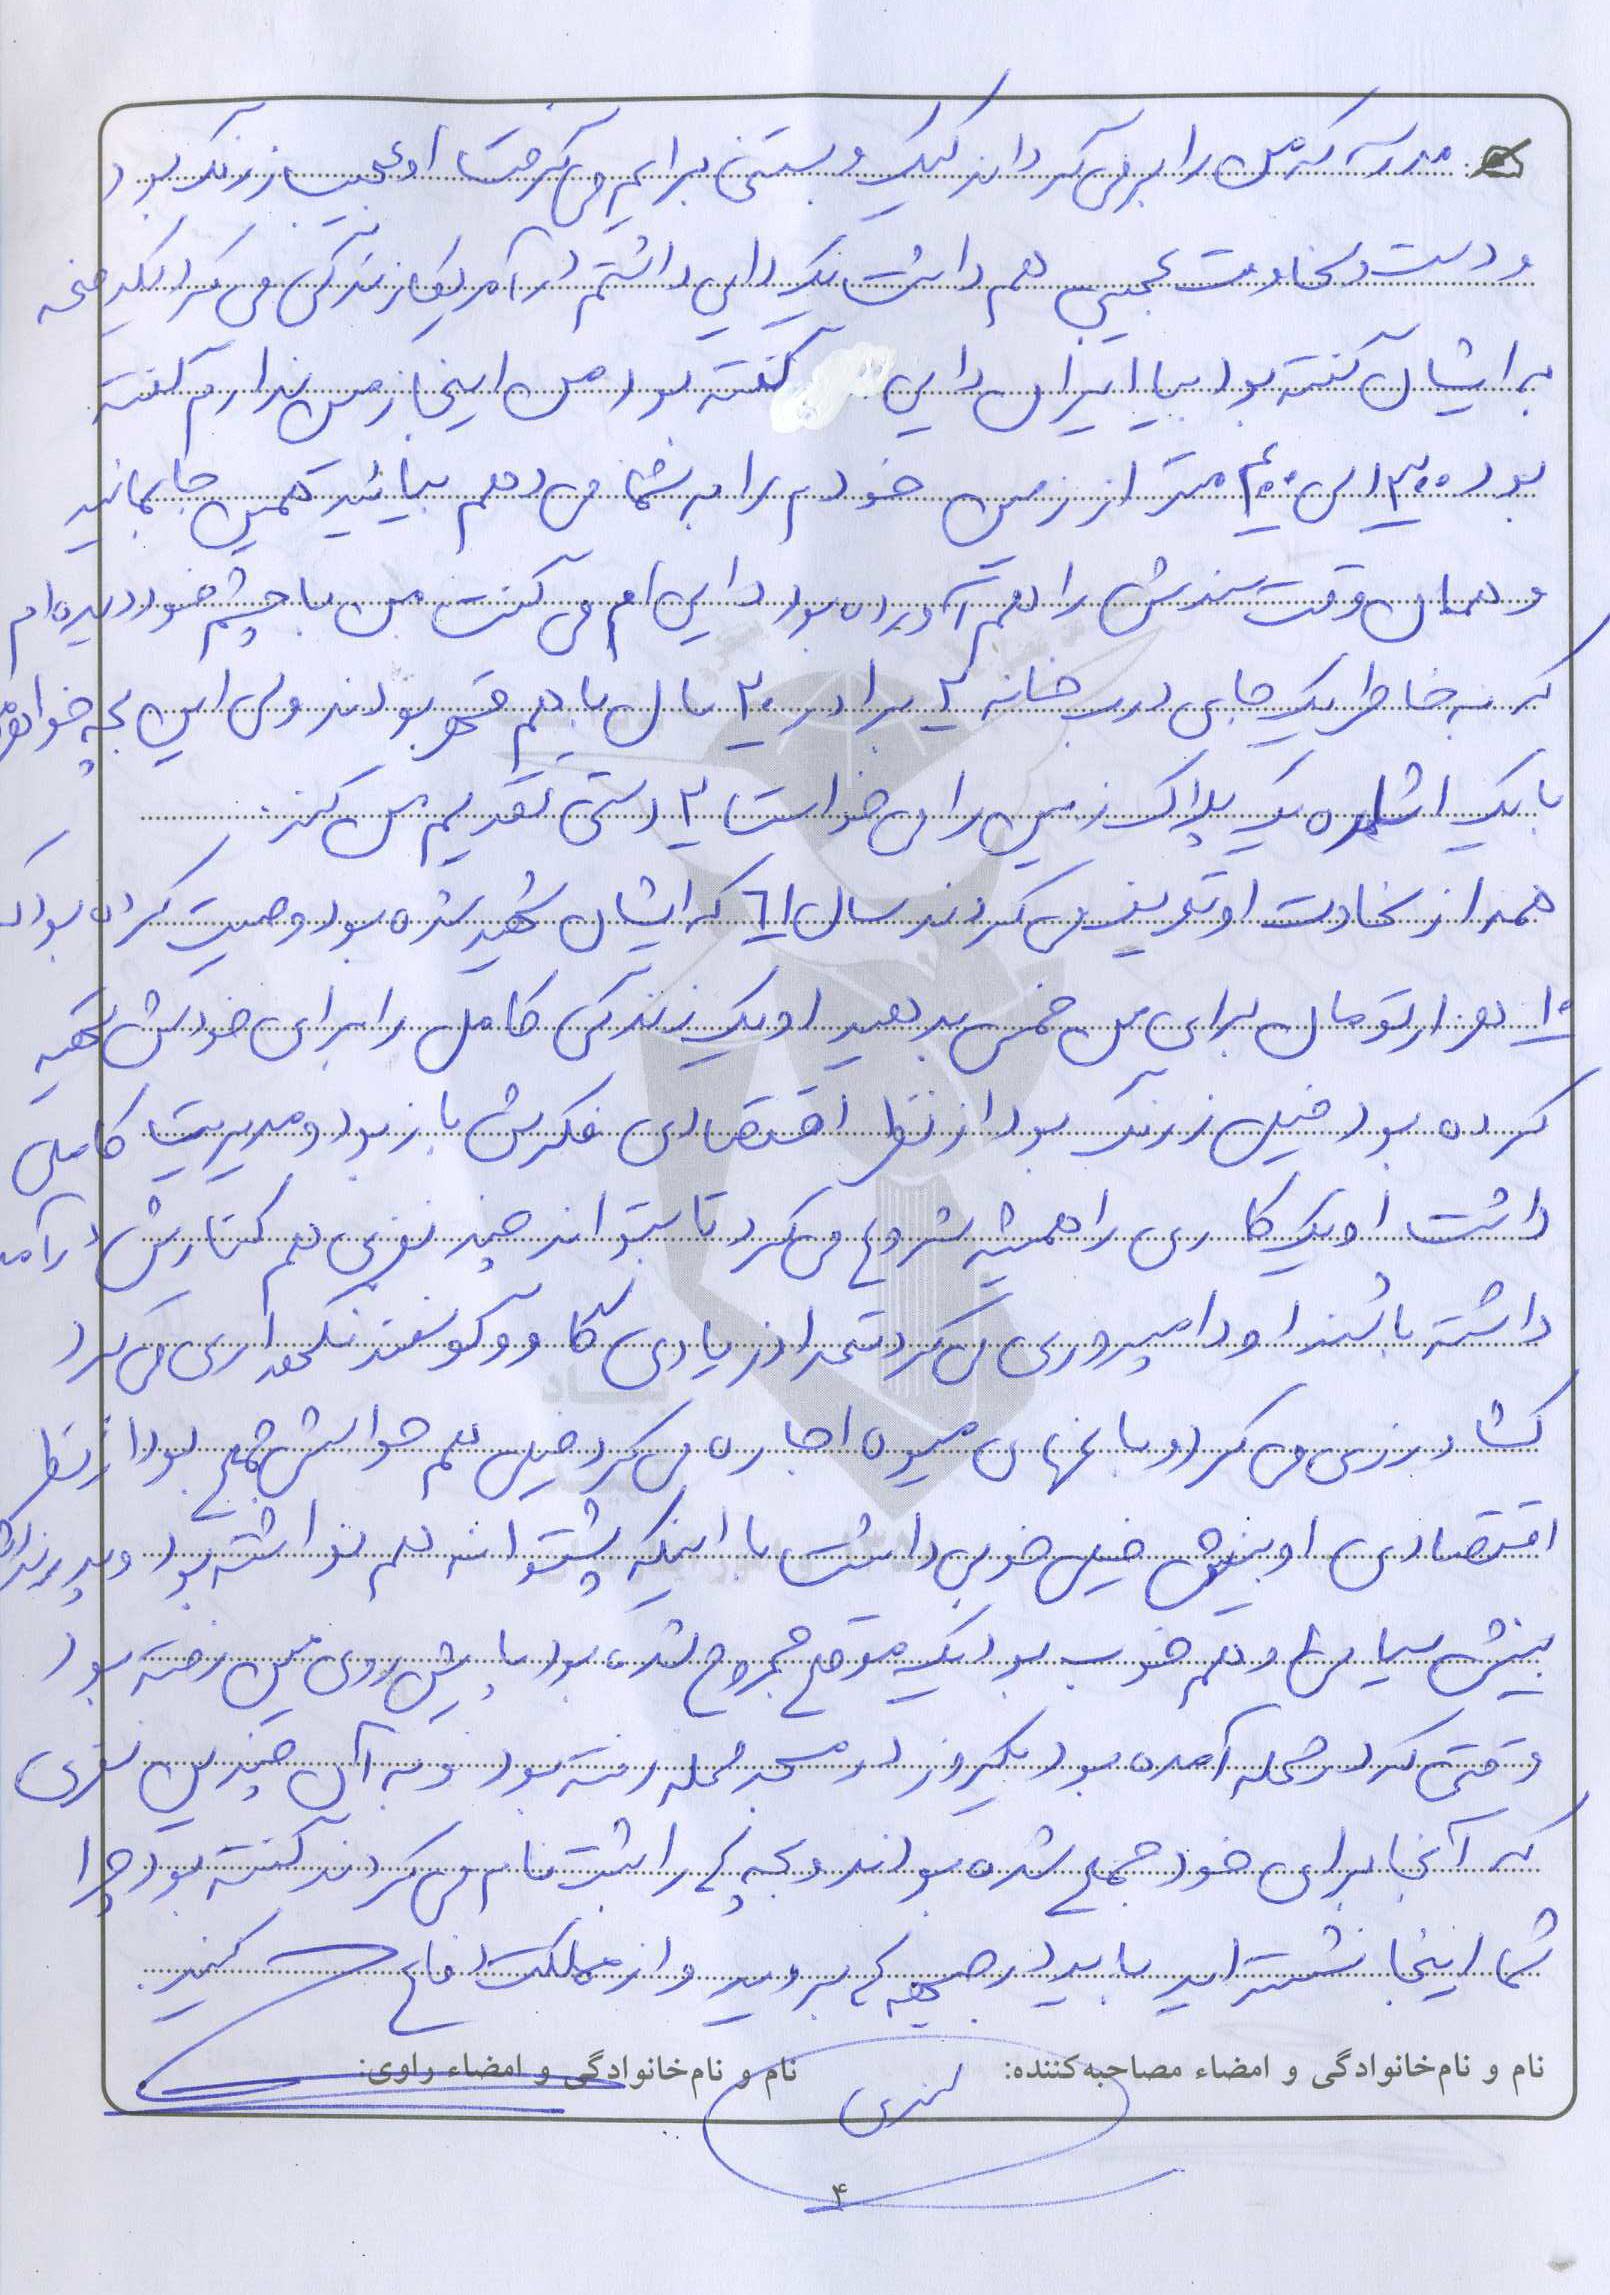 مدرسه که من را بر می گرداند کیک و بستنی برایم می گرفت او عجیب زرنگ بود
و دست و سخاوت عجیبی هم داشت یک دایی داشتم در آمریکا زندگی می کرد یکدفعه
به ایشان گفته بود بیا ایران دایی گفته بود من اینجا زمین ندارم گفته
بود ۳۰۰ الی ۴۰۰ متر از زمین خودم را به شما می دهم بیائید همین جا بمانید
و همان وقت سندش را هم آورده بود دایی ام می گفت من با چشم خود دیده ام
که به خاطر یک جای درب خانه ۲ برادر ۲۰ سال با هم قهر بودند ولی این بچه خواهرم
با یک اشاره یک پلاک زمین را می خواست ۲ دستی تقدیم من کند.
همه از سخاوت او تعریف می کردند سال ۶۱ که ایشان شهید شده بود وصیت کرده بود که
۱۰ هزار تومان برای من خمس بدهید او یک زندگی کامل را برای خودش تهیه
کرده بود خیلی زرنگ بود از نظر اقتصادی فکرش باز بود و مدیریت کاملی
داشت او یک کاری را همیشه شروع می کرد تا بتواند چند نفری هم کنارش درآمد
داشته باشند او دامپروری می کرد تعداد زیادی گاو و گوسفند نگهداری می کرد
کشاورزی می کرد و باغهای میوه اجاره می کرد خیلی هم حواسش جمع بود از نظر
اقتصادی او بینش خیلی خوبی داشت با اینکه پشتوانه هم نداشته بود و پدر نداشت
بینش سیاسی او هم خوب بود یک موقع مجروح شده بود پایش روی مین رفته بود
وقتی که در محله آمده بود یکروز در مسجد محله رفته بود و به آن چندین نفری
که آنجا برای خود جمع شده بودند و بچه ها را ثبت نام می کردند گفته بود چرا
شما اینجا نشسته اید باید در جبهه ها بروید و از مملکت دفاع کنید.
نام و نام‌خانوادگی و امضاء مصاحبه‌کننده: نام و نام‌خانوادگی و امضاء راوی:
۴